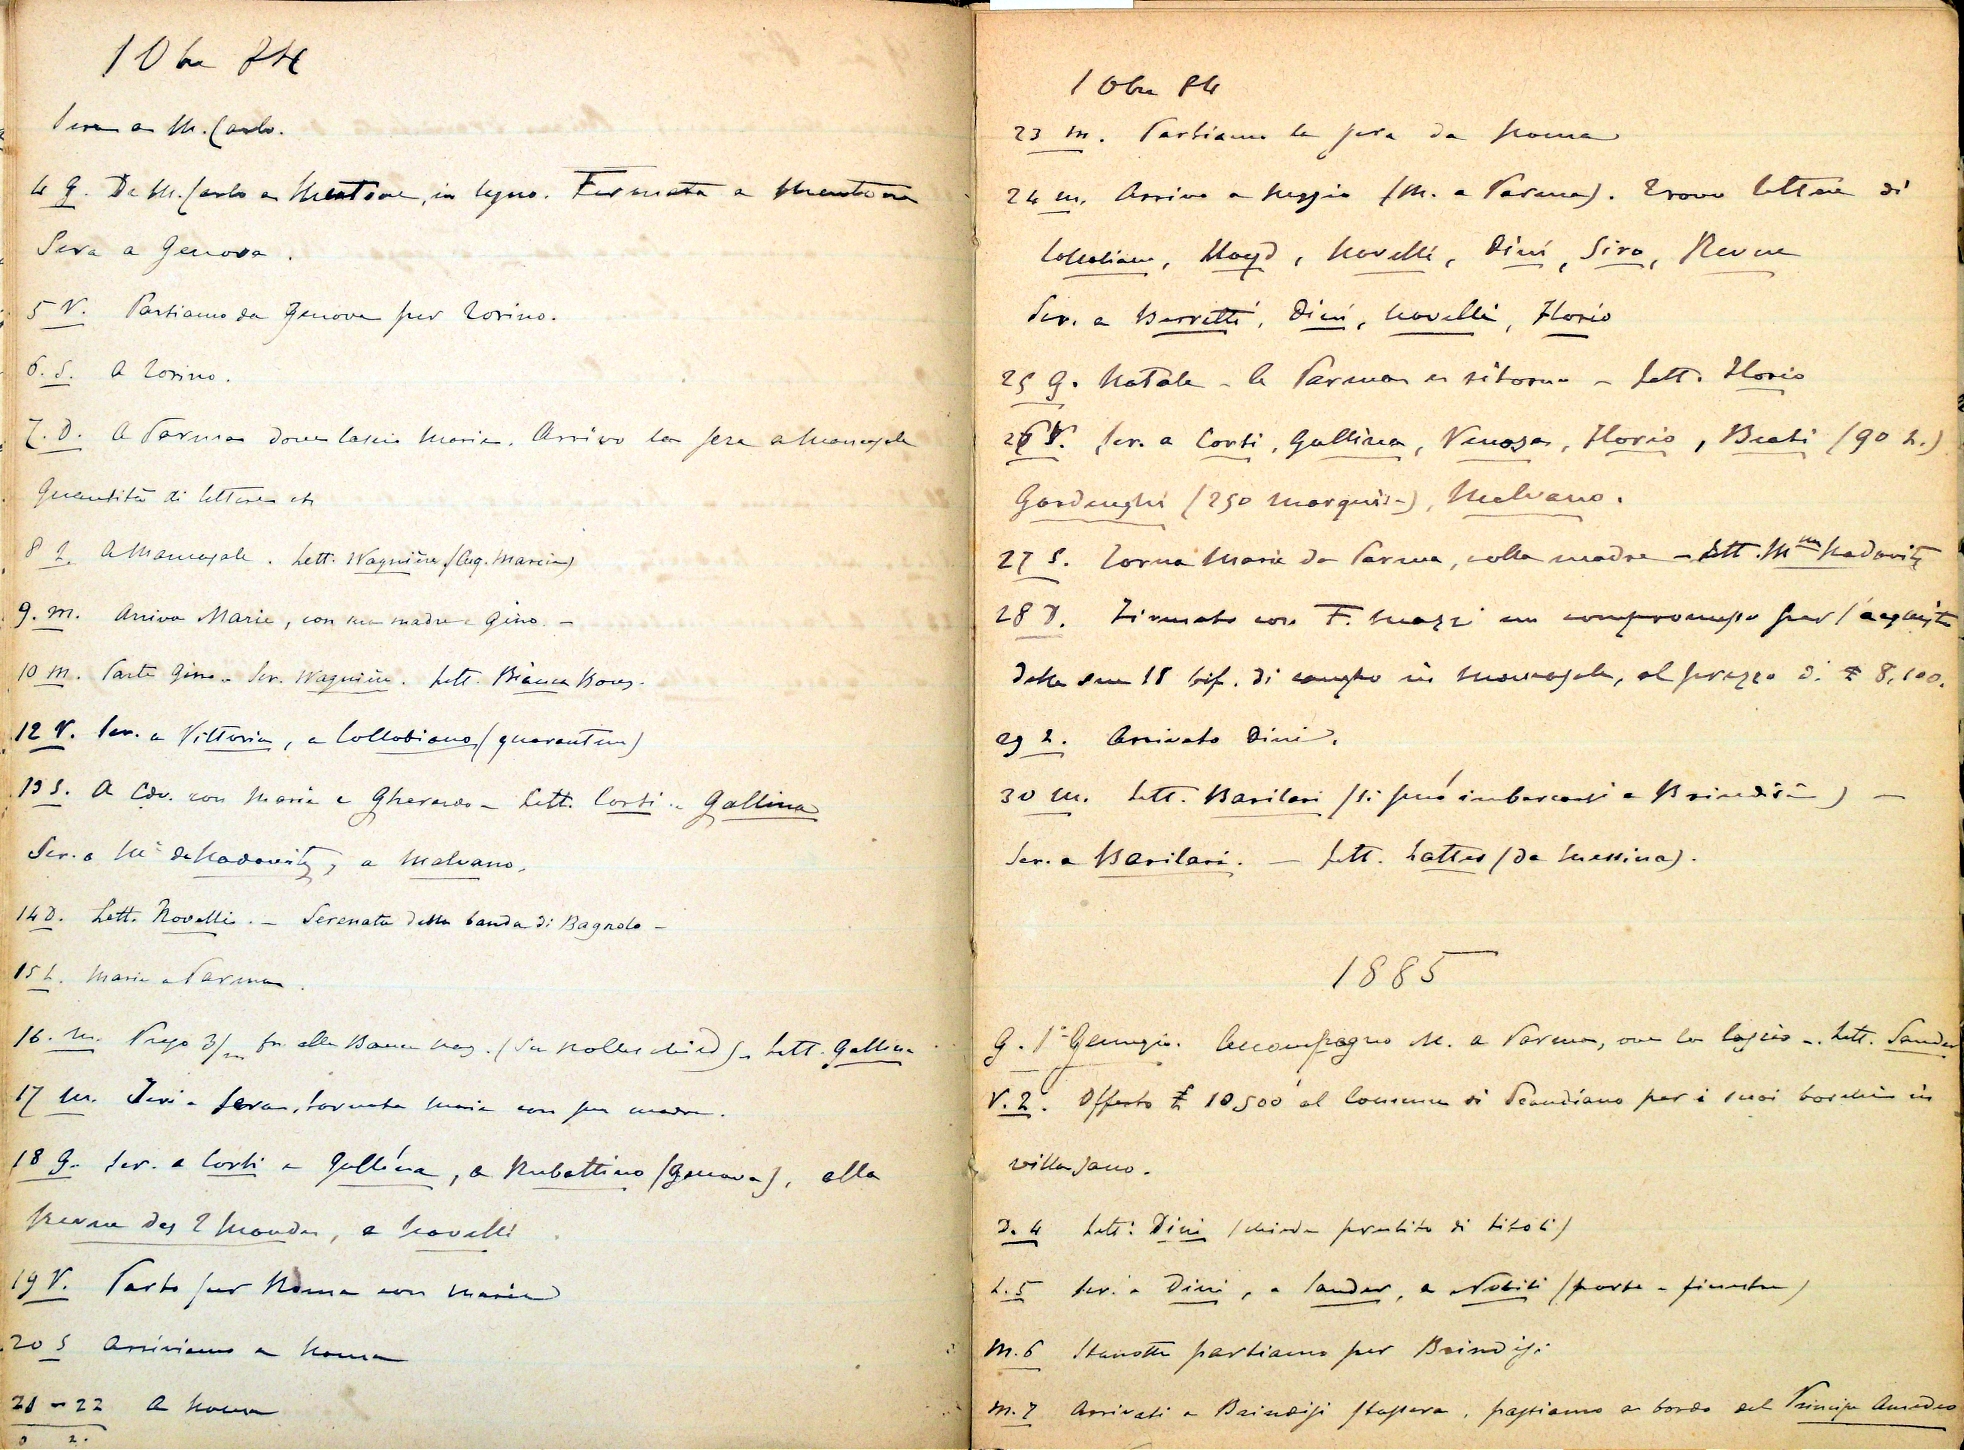 10bre 84
Sera a M. Carlo.
4 G. Da M. Carlo a Mentone, in legno. Fermata a Mentone
Sera a Genova.
5 V. Partiamo da Genova per Torino.
6. S. A Torino.
7. D. A Parma dove lascio Maria. Arrivo la sera a Mancasale
Quantità di lettere etc
8 L. A Mancasale. Lett. Wagnière (Aug. Marcia)
9. M. Arriva Marie, con sua madre e Gino. —
10 M. Parte Gino - Scr. Wagnière. Lett. Bianca
12 V. Scr. a Vittoria, a Collobiano (quarantena)
13 S. A Cdv. con Maria e Gherardo - Lett. Corti - Gallina
Scr. a Mᵉ de Nadovitz, a Malvano.
14 D. Lett. Novelli. — Serenata della banda di Bagnolo —
15 L. Maria a Parma.
16. M. 3/m fr. alla Banca Naz. (su Rothschild) - Lett. Gallina
17 M. Ieri a sera, tornata Maria con sua madre.
18 G. Scr. a Corti a Gallina, a Rubattino (Genova), alla
Revue des 2 Mondes, a Novelli
19 V. Parto per Roma con Maria
20 S Arriviamo a Roma
21 - 22 A Roma
D L.
10bre 84
23 M. Partiamo la sera da Roma
24 M. Arrivo a Reggio (M. a Parma). Trovo lettere di
Collobiano, Lloyd, Novelli, Dini, Siro, Revue
Scr. a Berretti, Dini, Novelli, Florio
25 G. Natale - a Parma e ritorno - Lett. Florio
26 V. Scr. a Corti, Gallina, Venosa, Florio, Beati (90 L.)
Gardenghi (250 marquis-), Malvano.
27 S. Torna Maria da Parma, colla madre - Lett. Mme Nadovitz
28 D. Firmato con F. Mazzi un compromesso per l'acquisto
delle sue 18 bif. di campo in Mancasale, al prezzo di £ 8,100.
29 L. Arrivato Dini.
30 M. Lett. Barilari (si può imbarcarsi a Brindisi) —
Scr. a Barilari. — Lett. Lattes (da Messina).
1885
G. 1° Gennajo. Accompagno M. a Parma, ove la lascio -. Lett. Sander
V. 2. Offerto £ 10500 al Comune di Scandiano per i suoi boschi in
villa Jano.
D. 4 Lett. Dini (chiede prestito di titoli)
L. 5 Scr. a Dini, a Sander, a Nobili (porte - finestre)
M. 6 Stanotte partiamo per Brindisi
M. 7 Arrivati a Brindisi stassera, passiamo a bordo del Principe Amedeo